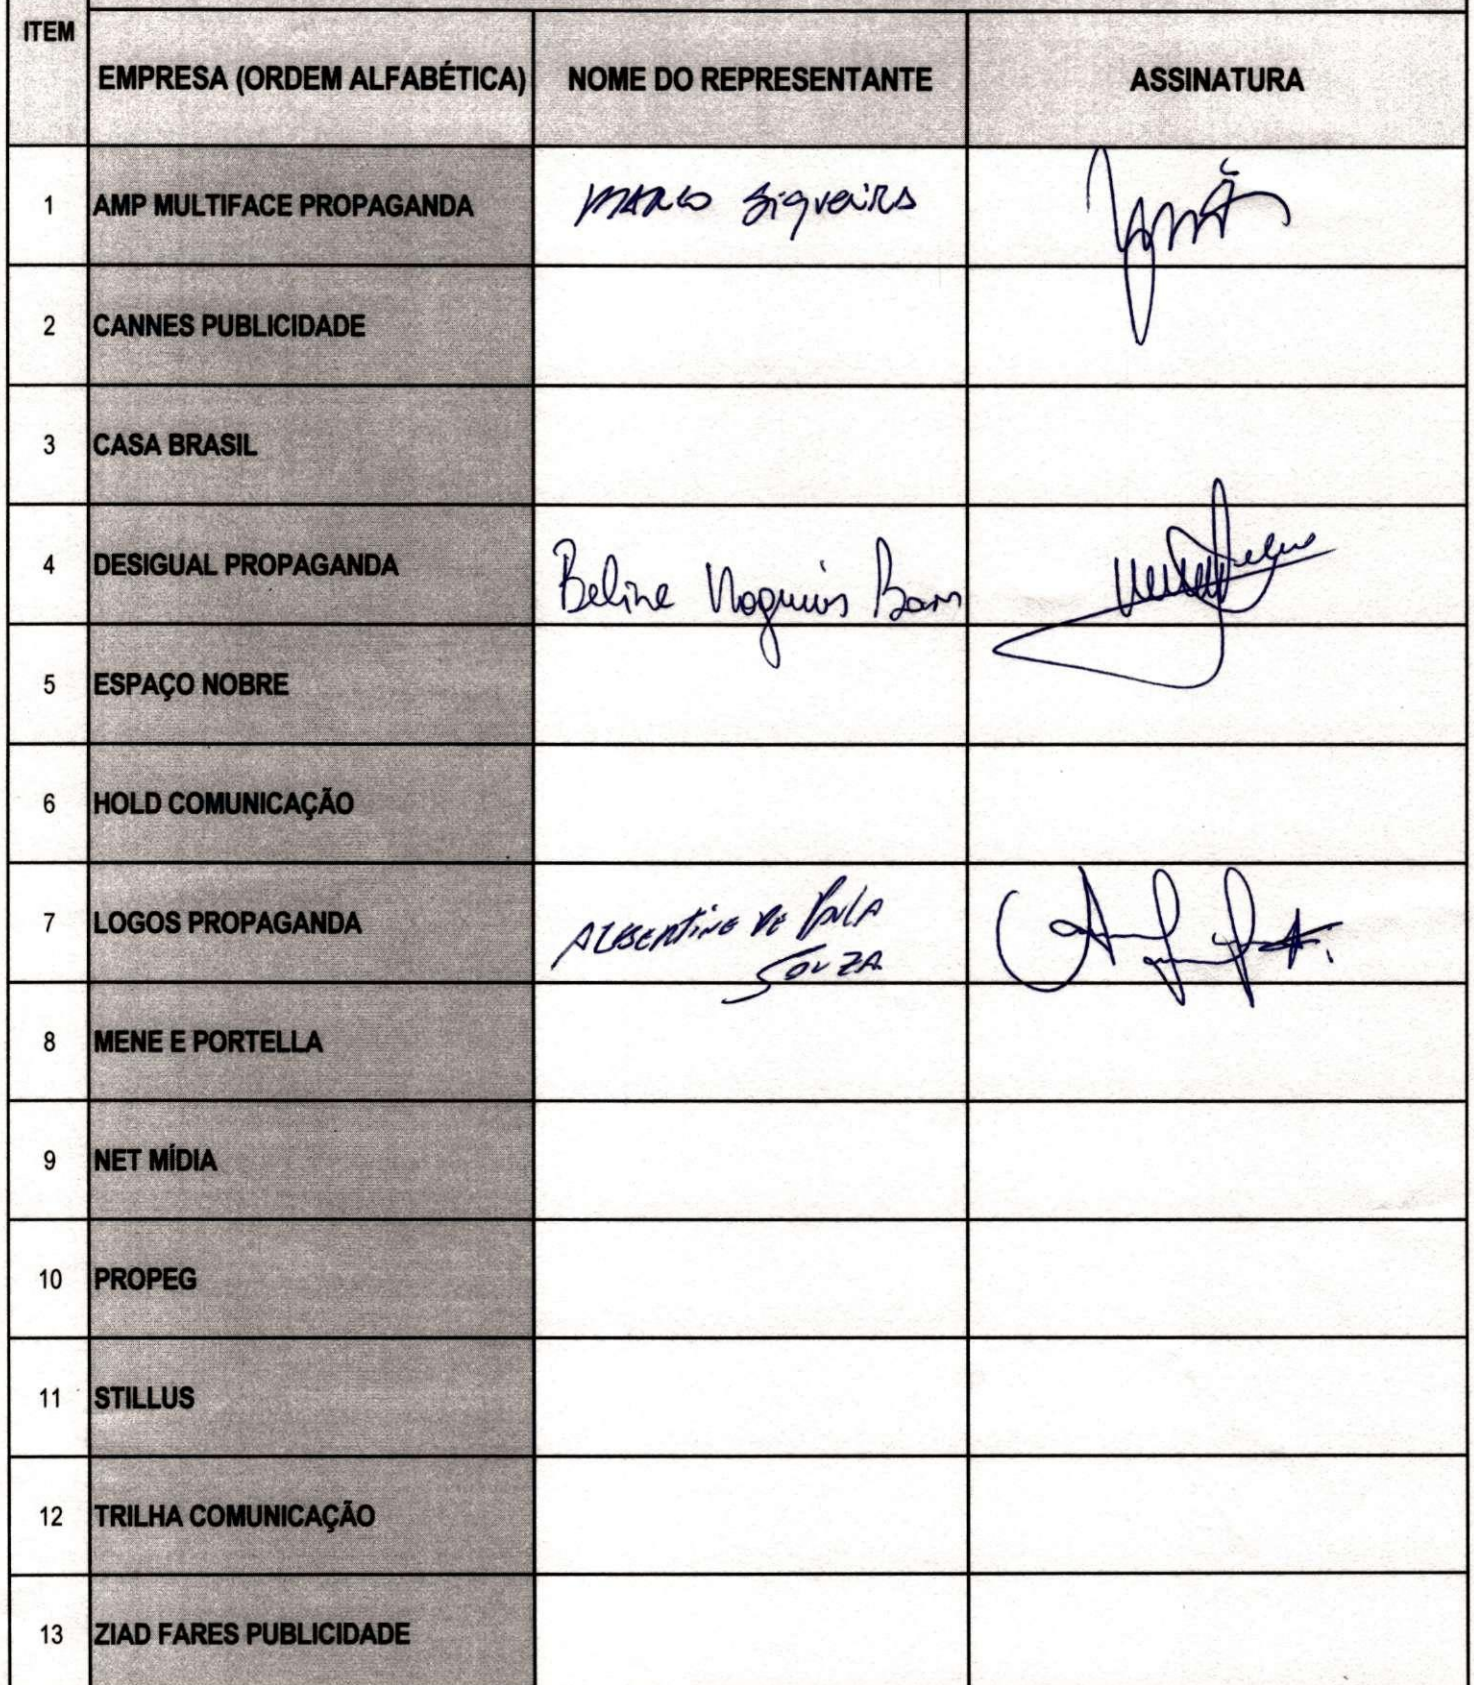 ITEM
EMPRESA (ORDEM ALFABÉTICA) NOME DO REPRESENTANTE ASSINATURA
1 AMP MULTIFACE PROPAGANDA MARCO Siqueira
2 CANNES PUBLICIDADE
3 CASA BRASIL
4 DESIGUAL PROPAGANDA Beline Nogueira
5 ESPAÇO NOBRE
6 HOLD COMUNICAÇÃO
7 LOGOS PROPAGANDA DE PAULA
SOUZA
8 MENE E PORTELLA
9 NET MÍDIA
10 PROPEG
11 STILLUS
12 TRILHA COMUNICAÇÃO
13 ZIAD FARES PUBLICIDADE